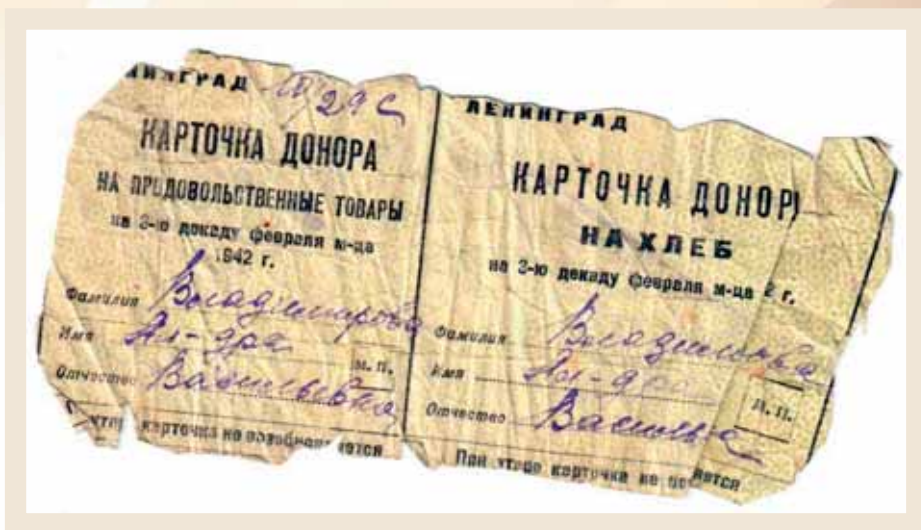 ИНГРАД
КАРТОЧКА ДОНОРА
НА ПРОДОВОЛЬСТВЕННЫЕ ТОВАРЫ
на 3-ю декаду февраля м-ца
1942 г.
Фамилия Владимирова
Имя Ал-дра
Отчество Васильевна
М. П.
карточка не возобновляется
ЛЕНИНГРАД
КАРТОЧКА ДОНОР
НА ХЛЕБ
на 3-ю декаду февраля м-ца 2 г.
Фамилия
Имя Ал-дра
Отчество
М. П.
При утере карточка не